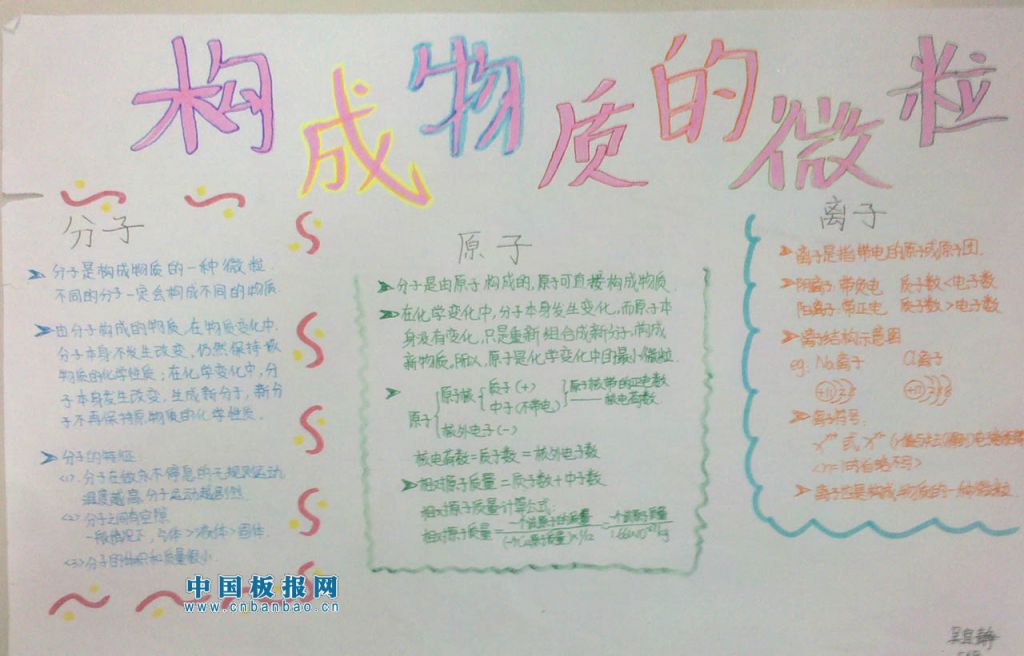 构成物质的微粒
分子
分子是构成物质的一种微粒.
不同的分子一定会构成不同的物质.
由分子构成的物质,在物质变化中,
分子本身不发生改变,仍然保持
物质的化学性质;在化学变化中,分
子本身发生改变,生成新分子,新分
子不再保持原物质的化学性质.
分子的特征:
<1>.分子在做永不停息的无规则运动
温度越高,分子运动越剧烈.
<2>分子之间有空隙
一般情况下,气体>液体>固体.
<3>分子的体积和质量很小.
原子
分子是由原子构成的,原子可直接构成物质.
在化学变化中,分子本身发生变化,而原子本
身没有变化,只是重新组合成新分子,构成
新物质.所以,原子是化学变化中的最小微粒.
原子 原子核 质子(+) 原子核带的正电数
中子(不带电) 核电荷数
核外电子(-)
核电荷数=质子数=核外电子数
相对原子质量=质子数+中子数.
相对原子质量计算公式:
相对原子质量=
离子
离子是指带电的原子或原子团.
阴离子:带负电 质子数<电子数
阳离子:带正电 质子数>电子数
离子结构示意图
eg: Na离子 Cl离子
离子符号:
离子也是构成物质的一种微粒.
中国板报网
www.cnbanbao.cn